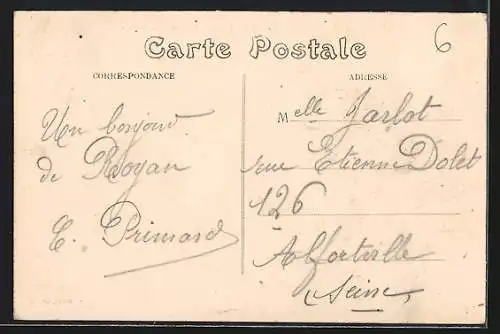 Carte Postale
6
CORRESPONDANCE
ADRESSE
Un bonjour
de Royan
E. Primard
Melle Jarlot
rue Etienne Dolet
126
Alfortville
Seine